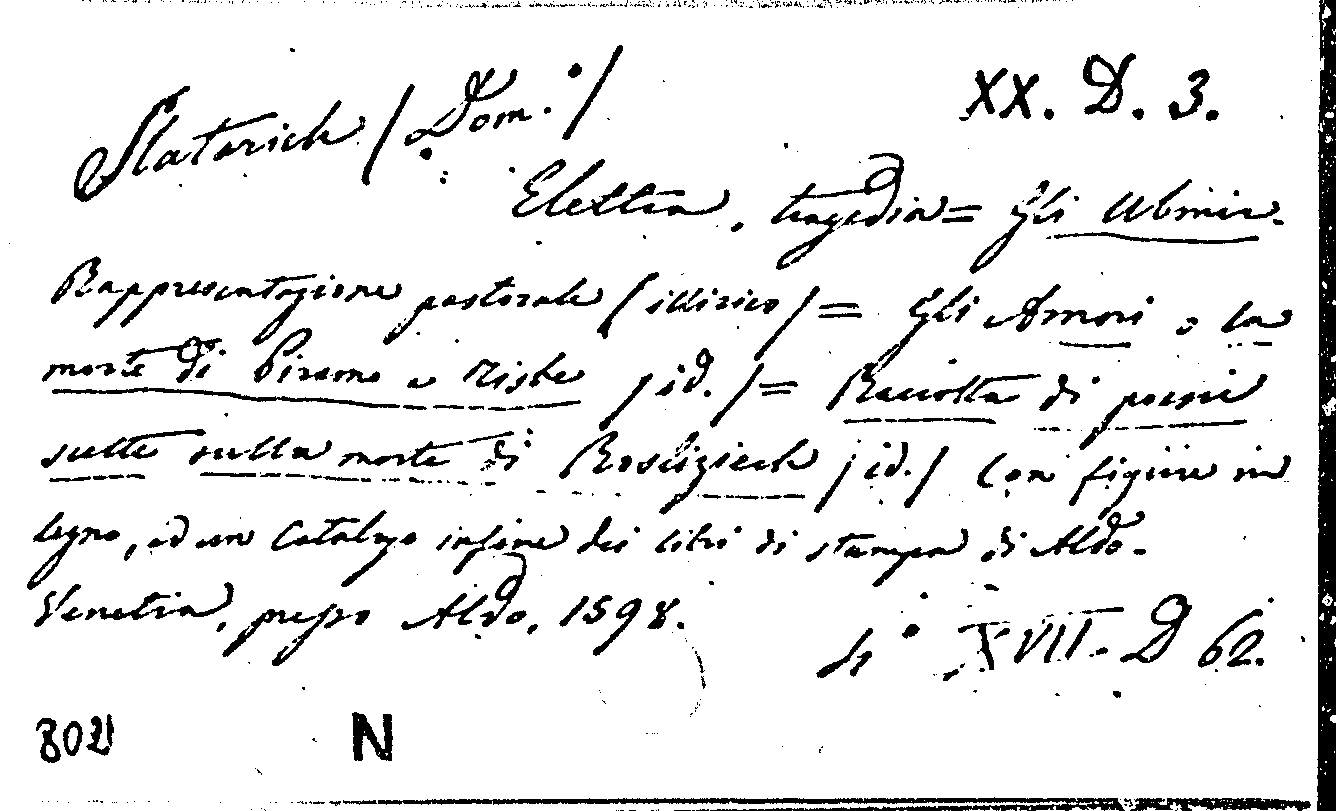 Slatarich / Dom.° / XX. D. 3.
Elettra, tragedia = Gli Ubmir.
Rappresentazione pastorale / illirico / = Gli Amori, e la
morte di Piramo e Tisbe / id. / = Raccolta di poesie
sulla morte di / id. / Con figure in
legno, ed un Catalogo infine dei libri di stampa di Aldo.
Venetia, presso Aldo, 1598.
4° XVII. D 62.
8021 N